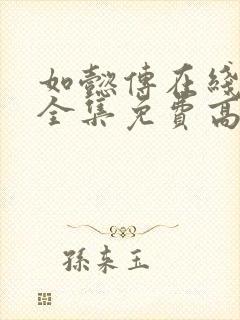 如懿傳在綫
全集免費高
孫來玉